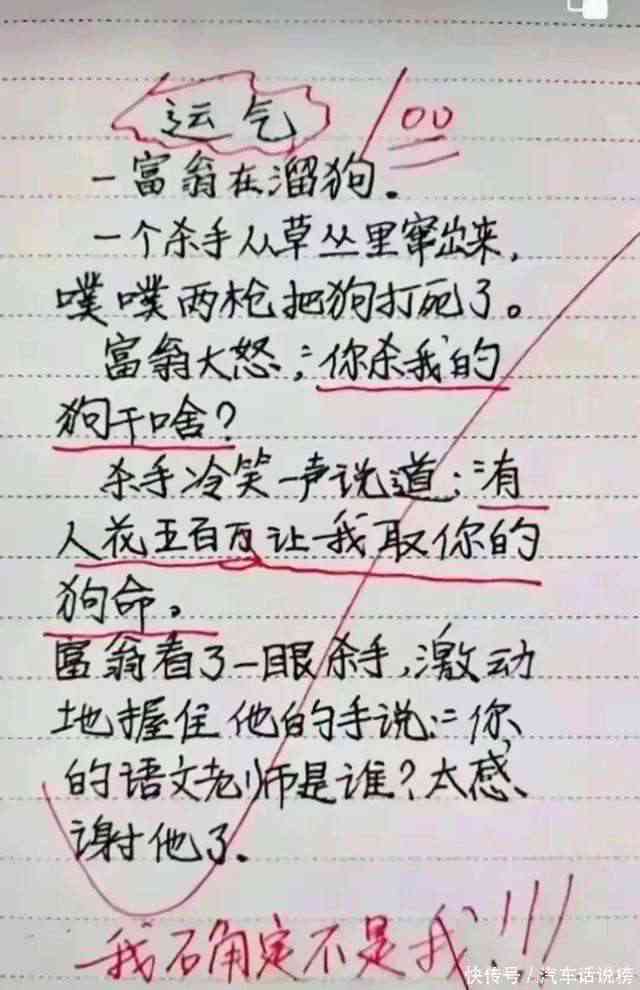 运气 100
一富翁在溜狗。
一个杀手从草丛里窜出来,
噗噗两枪把狗打死了。
富翁大怒:"你杀我的
狗干啥?
杀手冷笑一声说道:"有
人花五百万让我取你的
狗命。
富翁看了一眼杀手,激动
地握住他的手说:"你
的语文老师是谁?太感
谢他了.
我确定不是我!!!
快传号/汽车话说榜